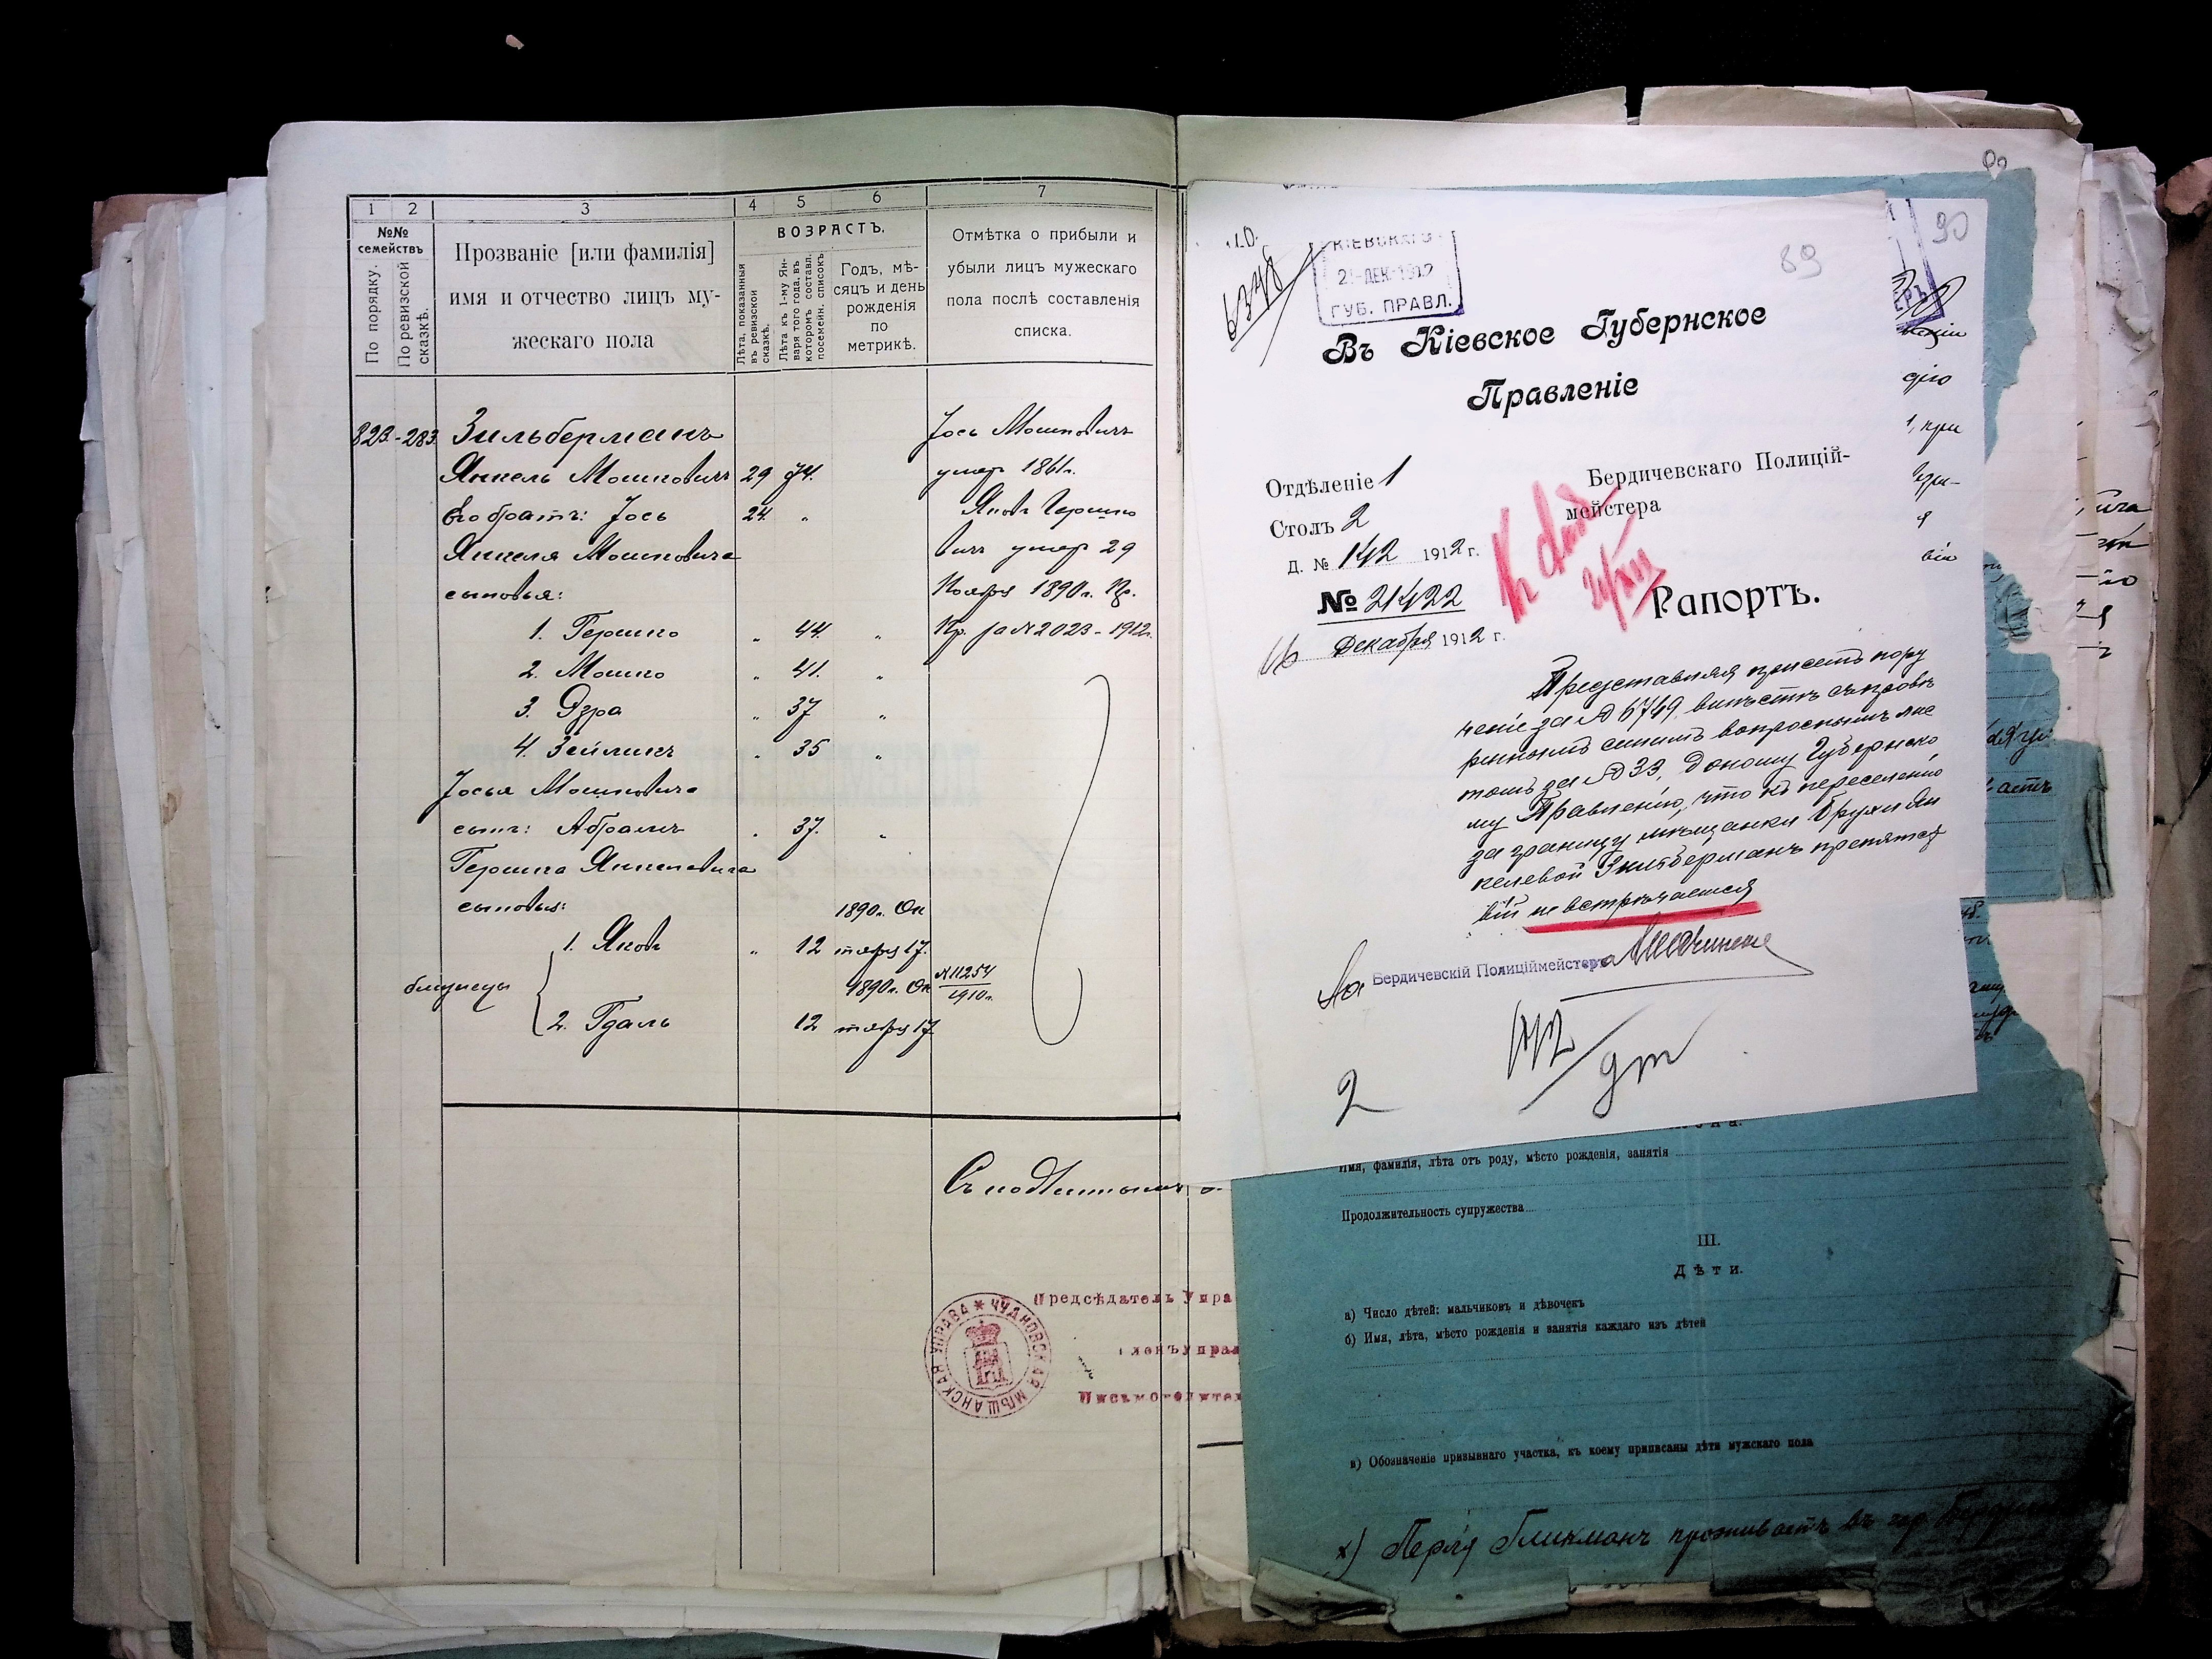 1 2 3 4 5 6 7
№№ семействъ
По порядку.
По ревизской сказкѣ.
Прозваніе [или фамилія]
имя и отчество лицъ му-
жескаго пола
ВОЗРАСТЪ.
Лѣта, показанныя въ ревизской сказкѣ.
Лѣта къ 1-му Ян-
варя того года, въ
которомъ составл.
посемейн. списокъ
Годъ, мѣ-
сяцъ и день
рожденія
по
метрикѣ.
Отмѣтка о прибыли и
убыли лицъ мужескаго
пола послѣ составленія
списка.
823-283 Зильберманъ
Янкель Мошковичъ 29 74.
Его братъ: Іось 24 "
Янкеля Мошковича
сыновья:
1. Гершко " 44 "
2. Мошко " 41. "
3. Эзра " 37 "
4. Зейликъ " 35 "
Іося Мошковича
сынъ: Абрамъ " 37. "
Гершка Янкелевича
сыновья:
1890г. Ок
1. Яковъ " 12 тября 17.
близнецы
1890г. Ок
2. Гдаль 12 тября 17
Іось Мошковичъ
умер 1861г.
Яковъ Гершко
вичъ умер 29
Ноября 1890г. Пр.
Пр. за №2023-1912г.
№11254
1910г.
Съ подлиннымъ
Предсѣдатель Упра
ленъ Упра
Письмоводител
ЧУДНОВСКАЯ МѢЩАНСКАЯ УПРАВА
90
89
6348
КІЕВСКАГО
2 -ДЕК-1912
ГУБ. ПРАВЛ.
Въ Кіевское Губернское
Правленіе
Отдѣленіе 1
Столъ 2
Д. № 142 1912 г.
№ 21422
16 Декабря 1912 г.
Бердичевскаго Полицій-
мейстера
Рапортъ.
Представляя при семъ пору
ченіе за № 6749, вмѣстѣ съ провѣ
реннымъ симъ вопроснымъ лис
томъ за № 33, доношу Губернско
му Правленію, что къ переселенію
за границу мѣщанки Брухи Ян
келевой Зильберманъ препятст
вій не встрѣчается
За Бердичевскій Полиціймейстеръ
142
2
Имя, фамилія, лѣта отъ роду, мѣсто рожденія, занятія
Продолжительность супружества
III.
Дѣти.
а) Число дѣтей: мальчиковъ и дѣвочекъ
б) Имя, лѣта, мѣсто рожденія и занятія каждаго изъ дѣтей
в) Обозначеніе призывнаго участка, къ коему приписаны дѣти мужскаго пола
х) Перля Гликманъ проживаетъ въ гор.